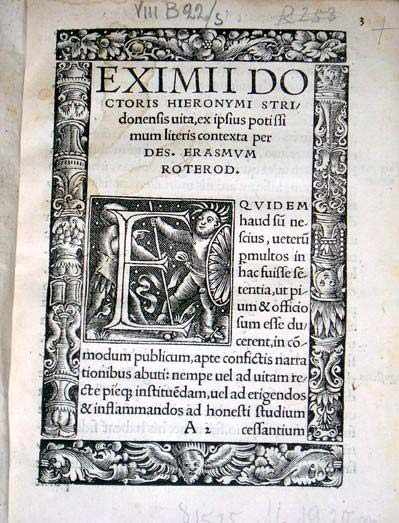 VIII B 22/5 R253
3
EXIMII DO
CTORIS HIERONYMI STRI/
donensis uita, ex ipsius potissi
mum literis contexta per
DES. ERASMVM
ROTEROD.
EQVIDEM
haud sū ne
scius, ueterū
pmultos in
hac fuisse sē
tentia, ut pi
um & officio
sum esse du
cerent, in cō
modum publicum, apte confictis narra
tionibus abuti: nempe uel ad uitam re
cte pieq; instituēdam, uel ad erigendos
& inflammandos ad honesti studium
A 2 cessantium